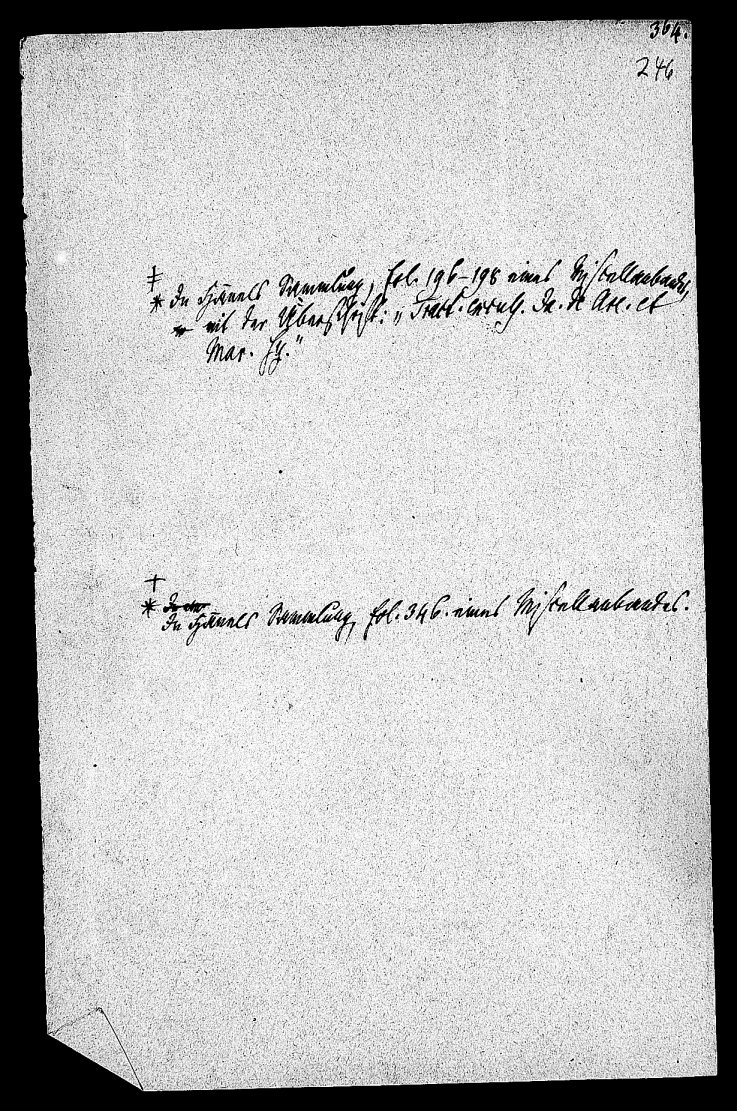 364.
246
‡
* In Hänels Sammlung, fol. 196–198 eines Miscellanbandes,
mit der Überschrift: „Tract. Jn. de et
Mar. Hf.“
+
* In
In Hänels Sammlung, fol. 346. eines Miscellanbandes.